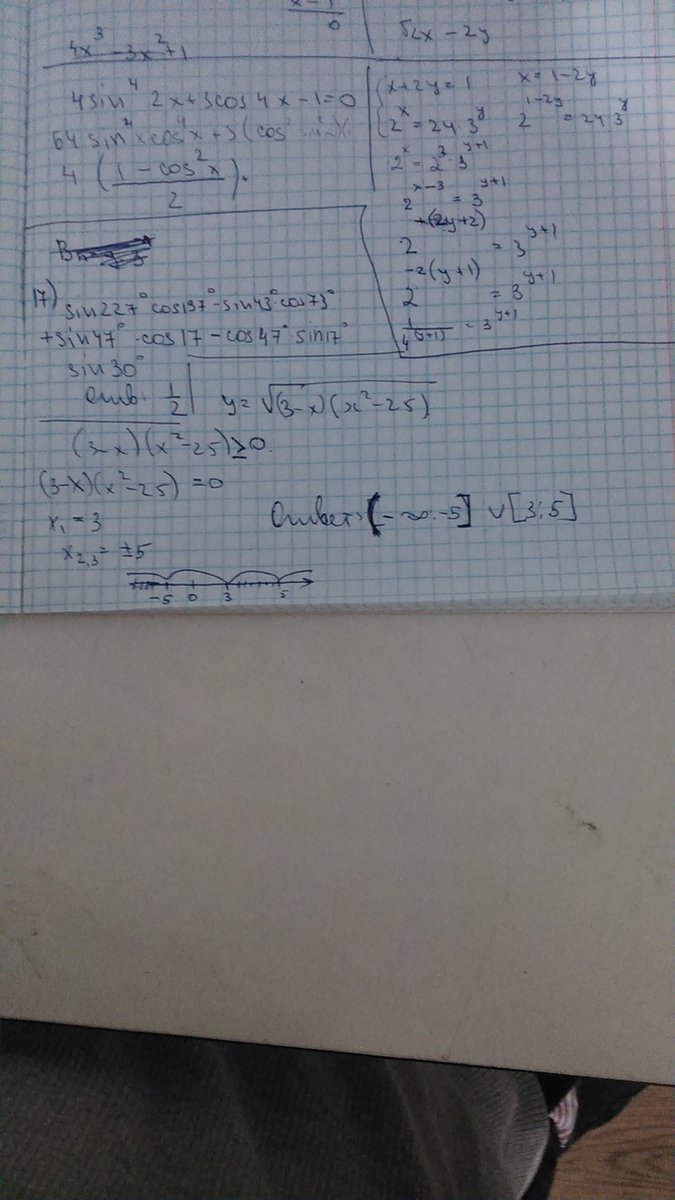 x-1
0
√2x - 2y
4x³ - 3x² + 1
4sin⁴ 2x + 3cos4x - 1 = 0
4 (1 - cos²x / 2)
x + 2y = 1 x = 1 - 2y
2ˣ = 24·3ʸ 2¹⁻²ʸ = 24·3ʸ
2ˣ = 2³·3ʸ⁺¹
2ˣ⁻³ = 3ʸ⁺¹
2 = 3ʸ⁺¹
2⁻²⁽ʸ⁺¹⁾ = 3ʸ⁺¹
1/4⁽ʸ⁺¹⁾ = 3ʸ⁺¹
17) sin227° cos197° - sin43° cos73°
+sin47° · cos17 - cos47° · sin17°
sin30°
Отв: 1/2
y = √(3-x)(x²-25)
(3-x)(x²-25) ≥ 0.
(3-x)(x²-25) = 0
x₁ = 3
x₂,₃ = ±5
-5 0 3 5
Ответ: (-∞; -5] ∪ [3; 5]